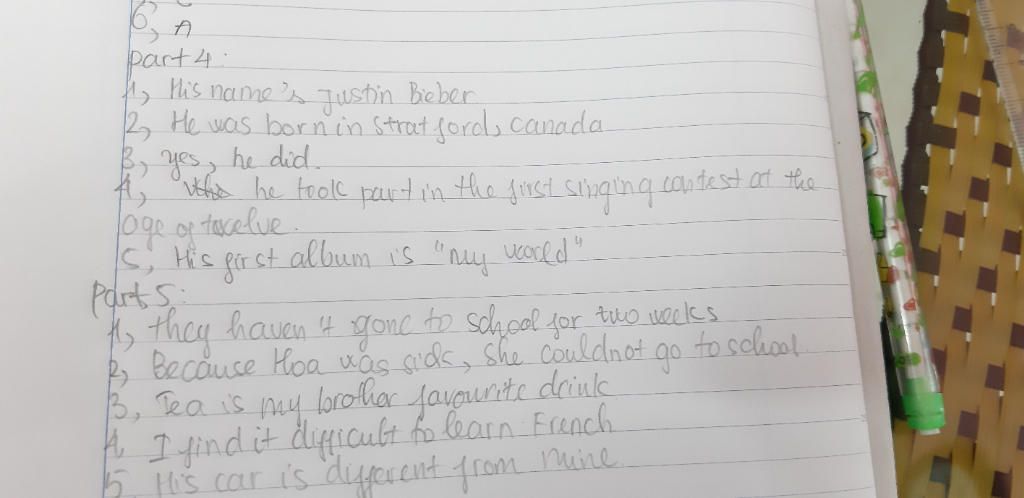 6, A
Part 4:
1, His name's Justin Bieber
2, He was born in Stratford, Canada
3, yes, he did.
4, he took part in the first singing contest at the
age of twelve.
5, His first album is "my world"
Part 5:
1, they haven't gone to school for two weeks
2, Because Hoa was sick, she couldnot go to school
3, Tea is my brother favourite drink
4, I find it difficult to learn French
5 His car is different from mine.